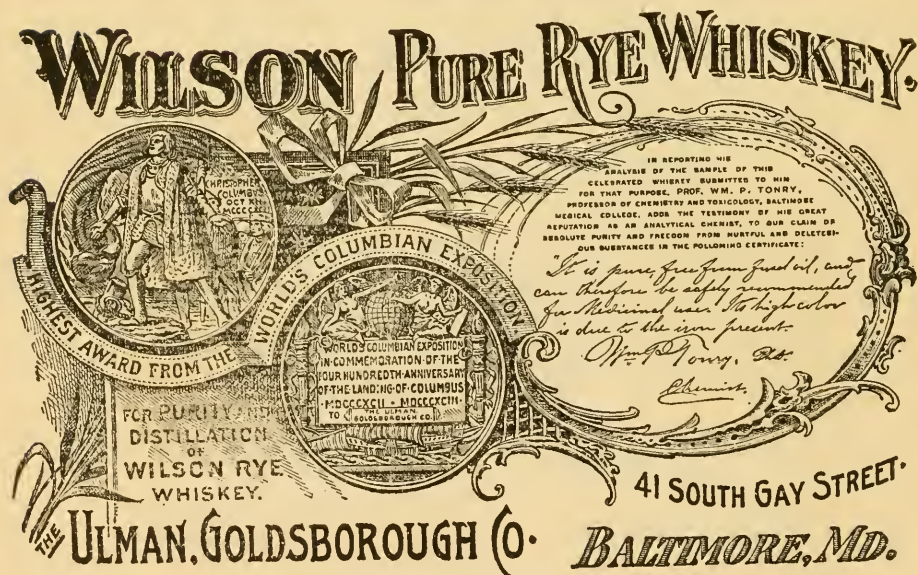 WILSON PURE RYE WHISKEY.
CHRISTOPHER
COLUMBUS
OCT XII
MCCCC
HIGHEST AWARD FROM THE WORLD'S COLUMBIAN EXPOSITION
WORLD'S COLUMBIAN EXPOSITION
IN COMMEMORATION OF THE
FOUR HUNDREDTH ANNIVERSARY
OF THE LANDING OF COLUMBUS
MDCCCXCII • MDCCCXCIII
TO THE ULMAN
GOLDSBOROUGH CO.
FOR PURITY AND
DISTILLATION
OF
WILSON RYE
WHISKEY.
IN REPORTING HIS
ANALYSIS OF THE SAMPLE OF THIS
CELEBRATED WHISKEY SUBMITTED TO HIM
FOR THAT PURPOSE, PROF. WM. P. TONRY,
PROFESSOR OF CHEMISTRY AND TOXICOLOGY, BALTIMORE
MEDICAL COLLEGE, ADDS THE TESTIMONY OF HIS GREAT
REPUTATION AS AN ANALYTICAL CHEMIST, TO OUR CLAIM OF
ABSOLUTE PURITY AND FREEDOM FROM HURTFUL AND DELETERI-
OUS SUBSTANCES IN THE FOLLOWING CERTIFICATE:
"It is pure, free from fusel oil, and
can therefore be safely recommended
for Medicinal uses. Its high color
is due to the iron present.
Wm P Tonry,
Chemist.
41 SOUTH GAY STREET.
THE ULMAN, GOLDSBOROUGH CO.
BALTIMORE, MD.